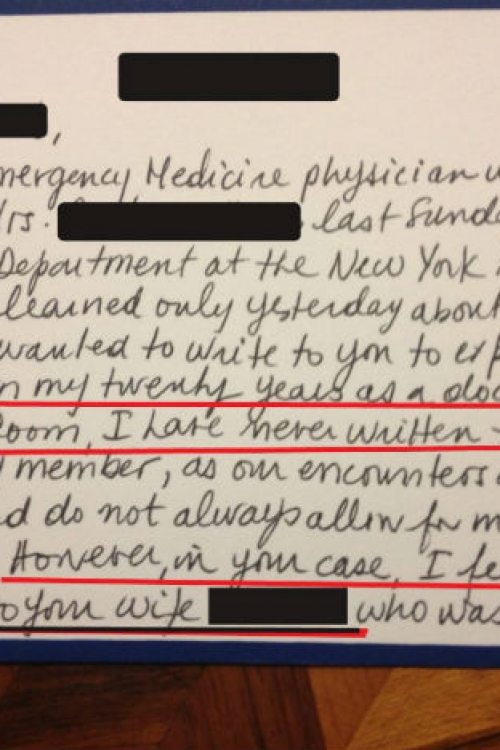 ,
mergency Medicine physician w
Mrs. last Sunda
Department at the New York
learned only yesterday about
wanted to write to you to exp
n my twenty years as a doc
oom, I have never written
member, as our encounters
d do not always allow for m
However, in your case, I fe
o your wife who was